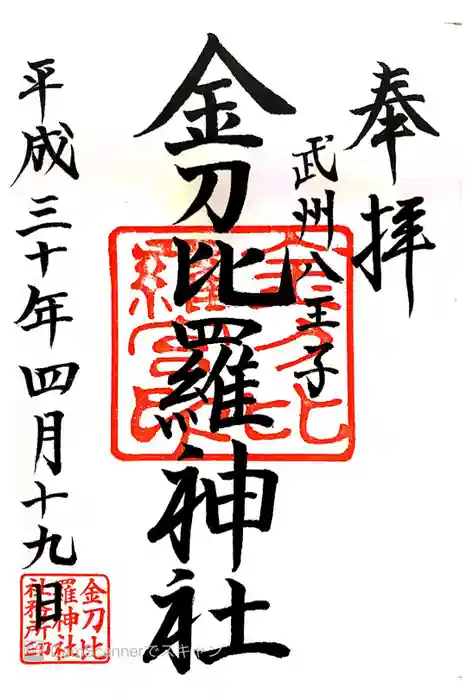 奉拝
武州八王子
金刀比羅神社
平成三十年四月十九日
金刀比
羅神社
社務所印
CamScannerでスキャン